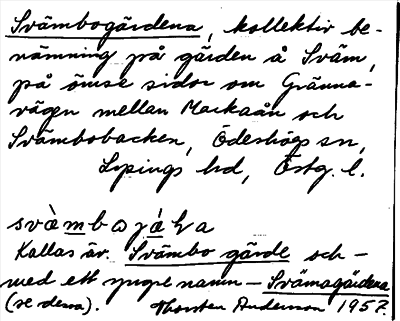 Svämbogärdena, kollektiv be-
nämning på gärden å Sväm,
på ömse sidor om Gränna-
vägen mellan Markaån och
Svämbobacken, Ödeshögs sn,
Lysings hd, Östg. l.
Kallas äv. Svämbo gärde och -
med ett yngre namn - Svämagärdena
(se dessa). Thorsten Andersson 1957.